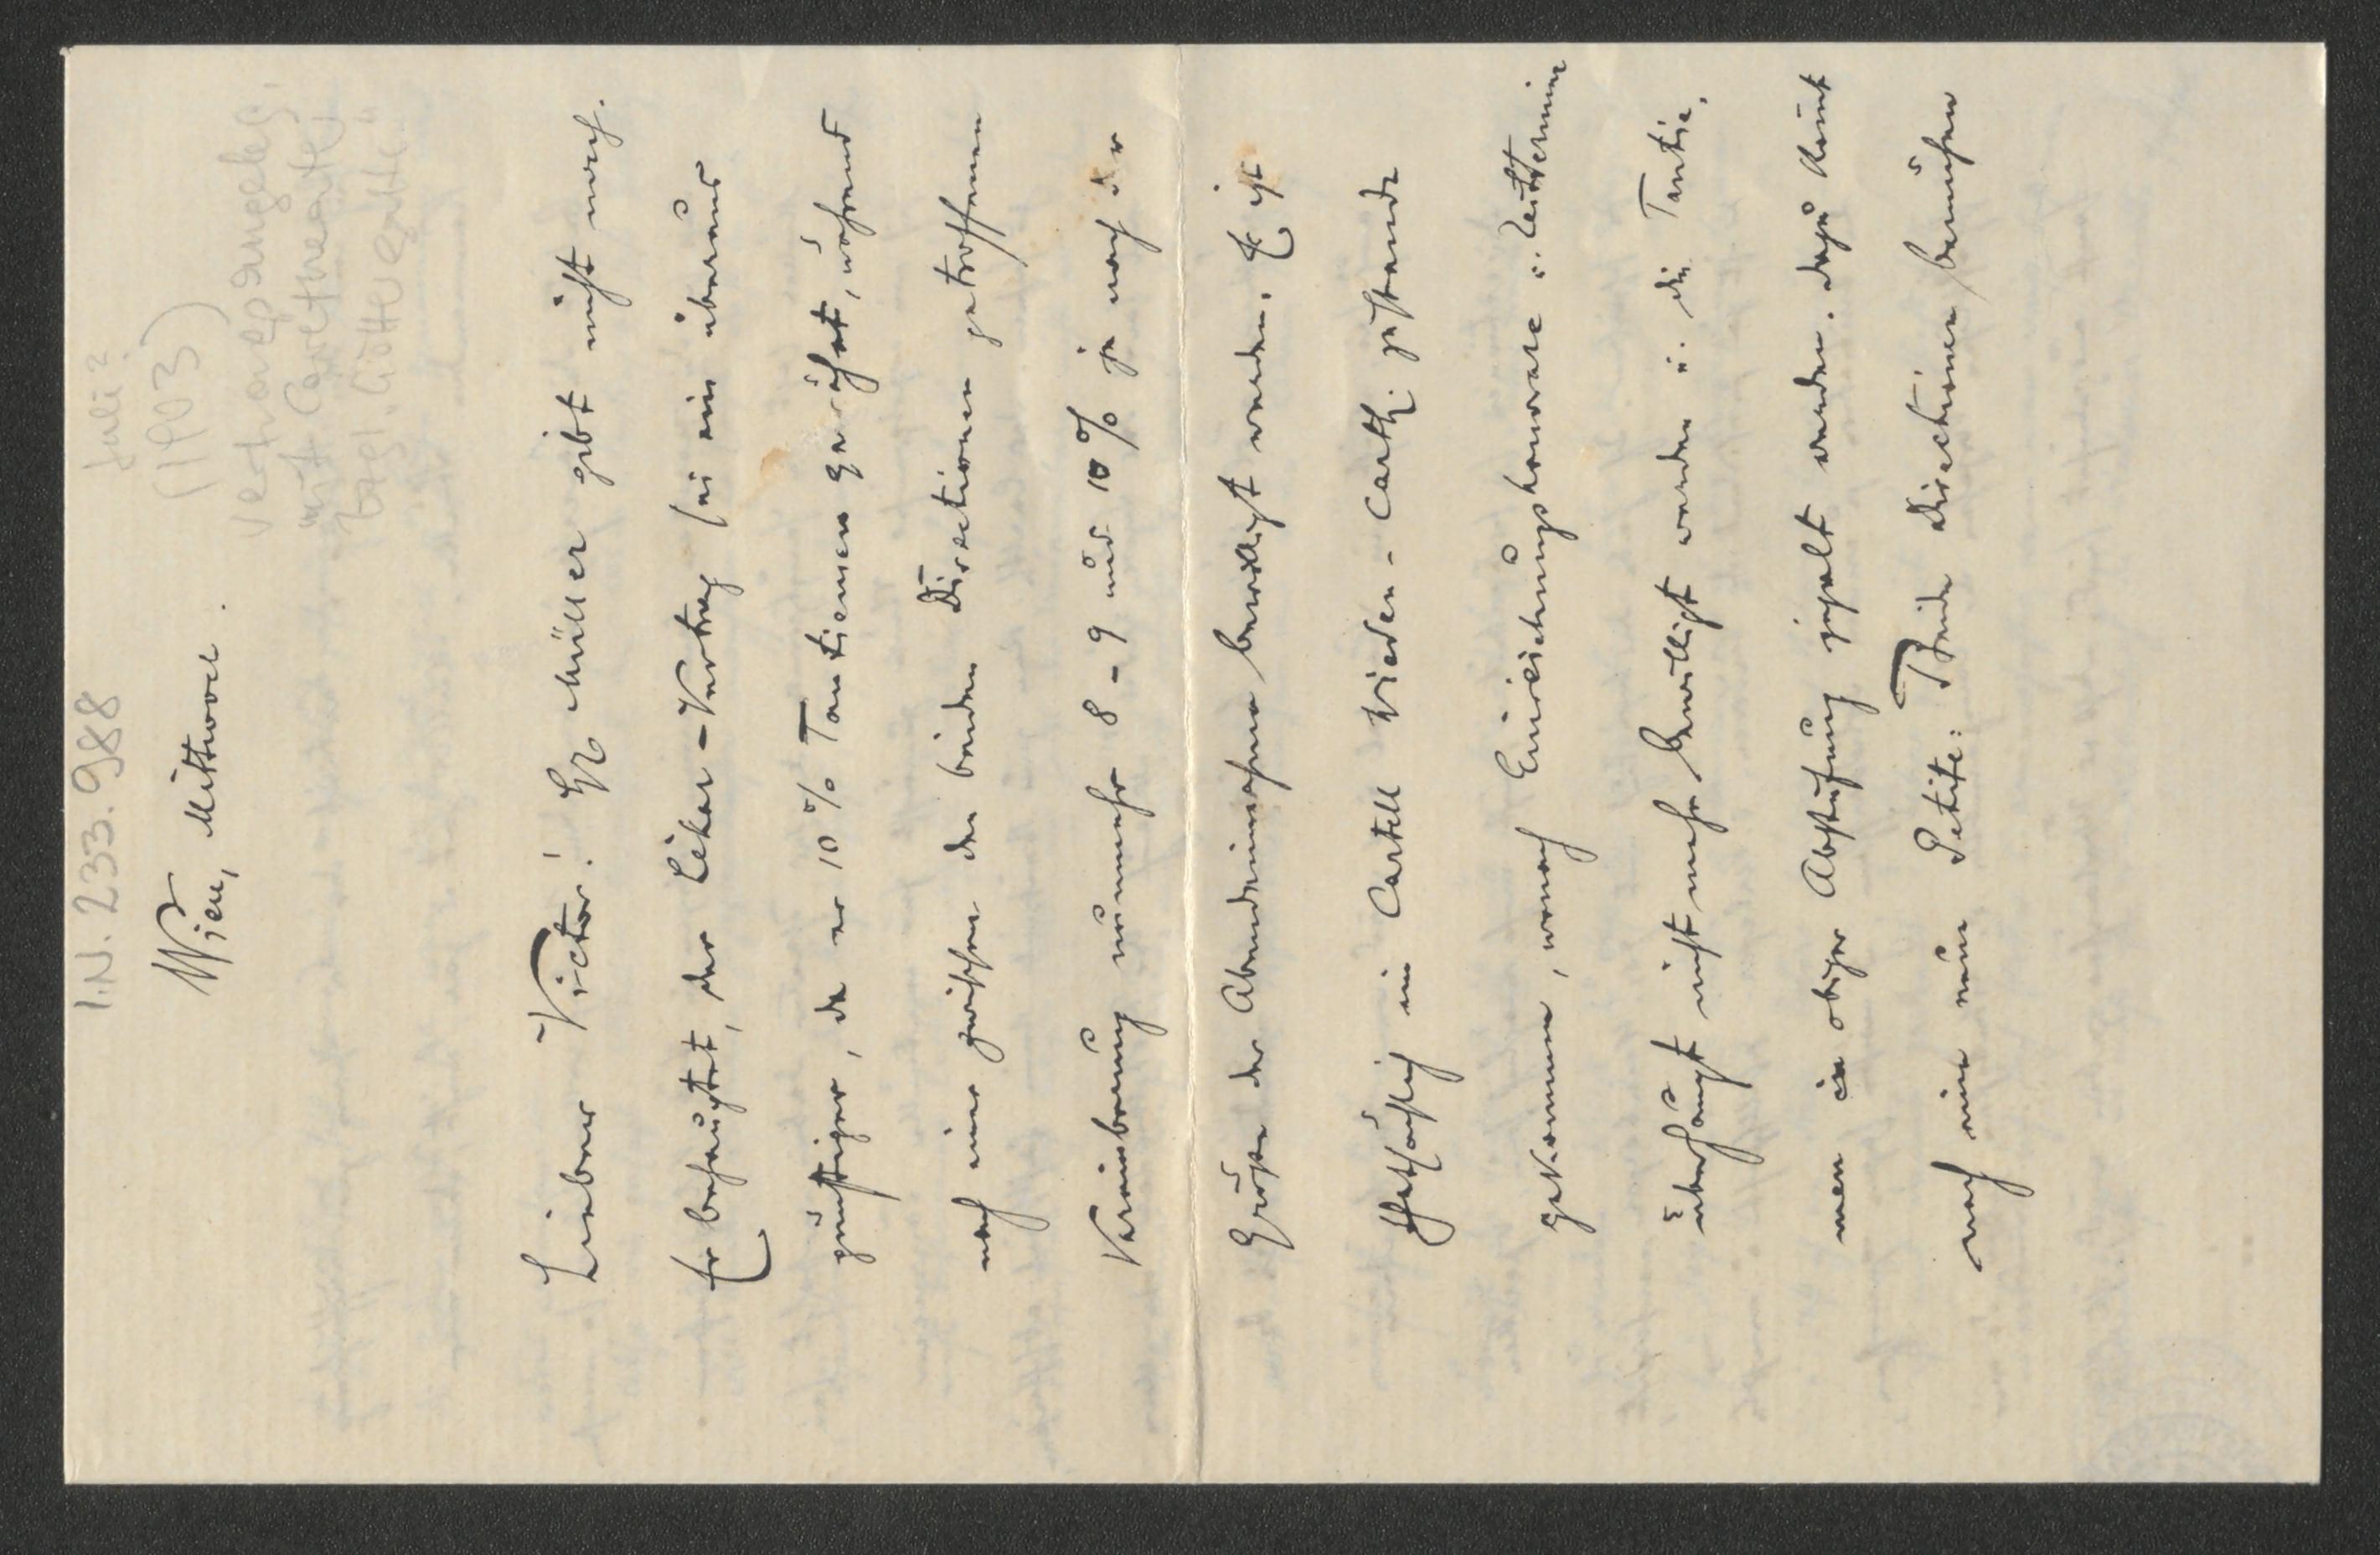 I.N. 233.988
Juli?
(1903)
Vertragsangeleg.
mit Carltheater
bzgl. "Göttergatte"
Wien, Mittwoch.
Lieber Victor! Hr Müller gibt nicht nach.
Er behauptet, der Lehar-Vertrag sei ein überaus
günstiger, da er 10% Tantiemen gewährt, während
nach einer zwischen den beiden Directionen getroffenen
Vereinbarung nunmehr 8-9 und 10% je nach der
Größe der Abendeinnahme bewilligt werden. Es ist
thatsächlich ein Cartell Wieden-Carlth. zustande
gekommen, wonach Einreichungshonorare u. Zeittermine
überhaupt nicht mehr bewilligt werden u. die Tantie-
men in obiger Abstufung gezahlt werden. Dazu kommt
noch eine neue Petite: Beide Directionen